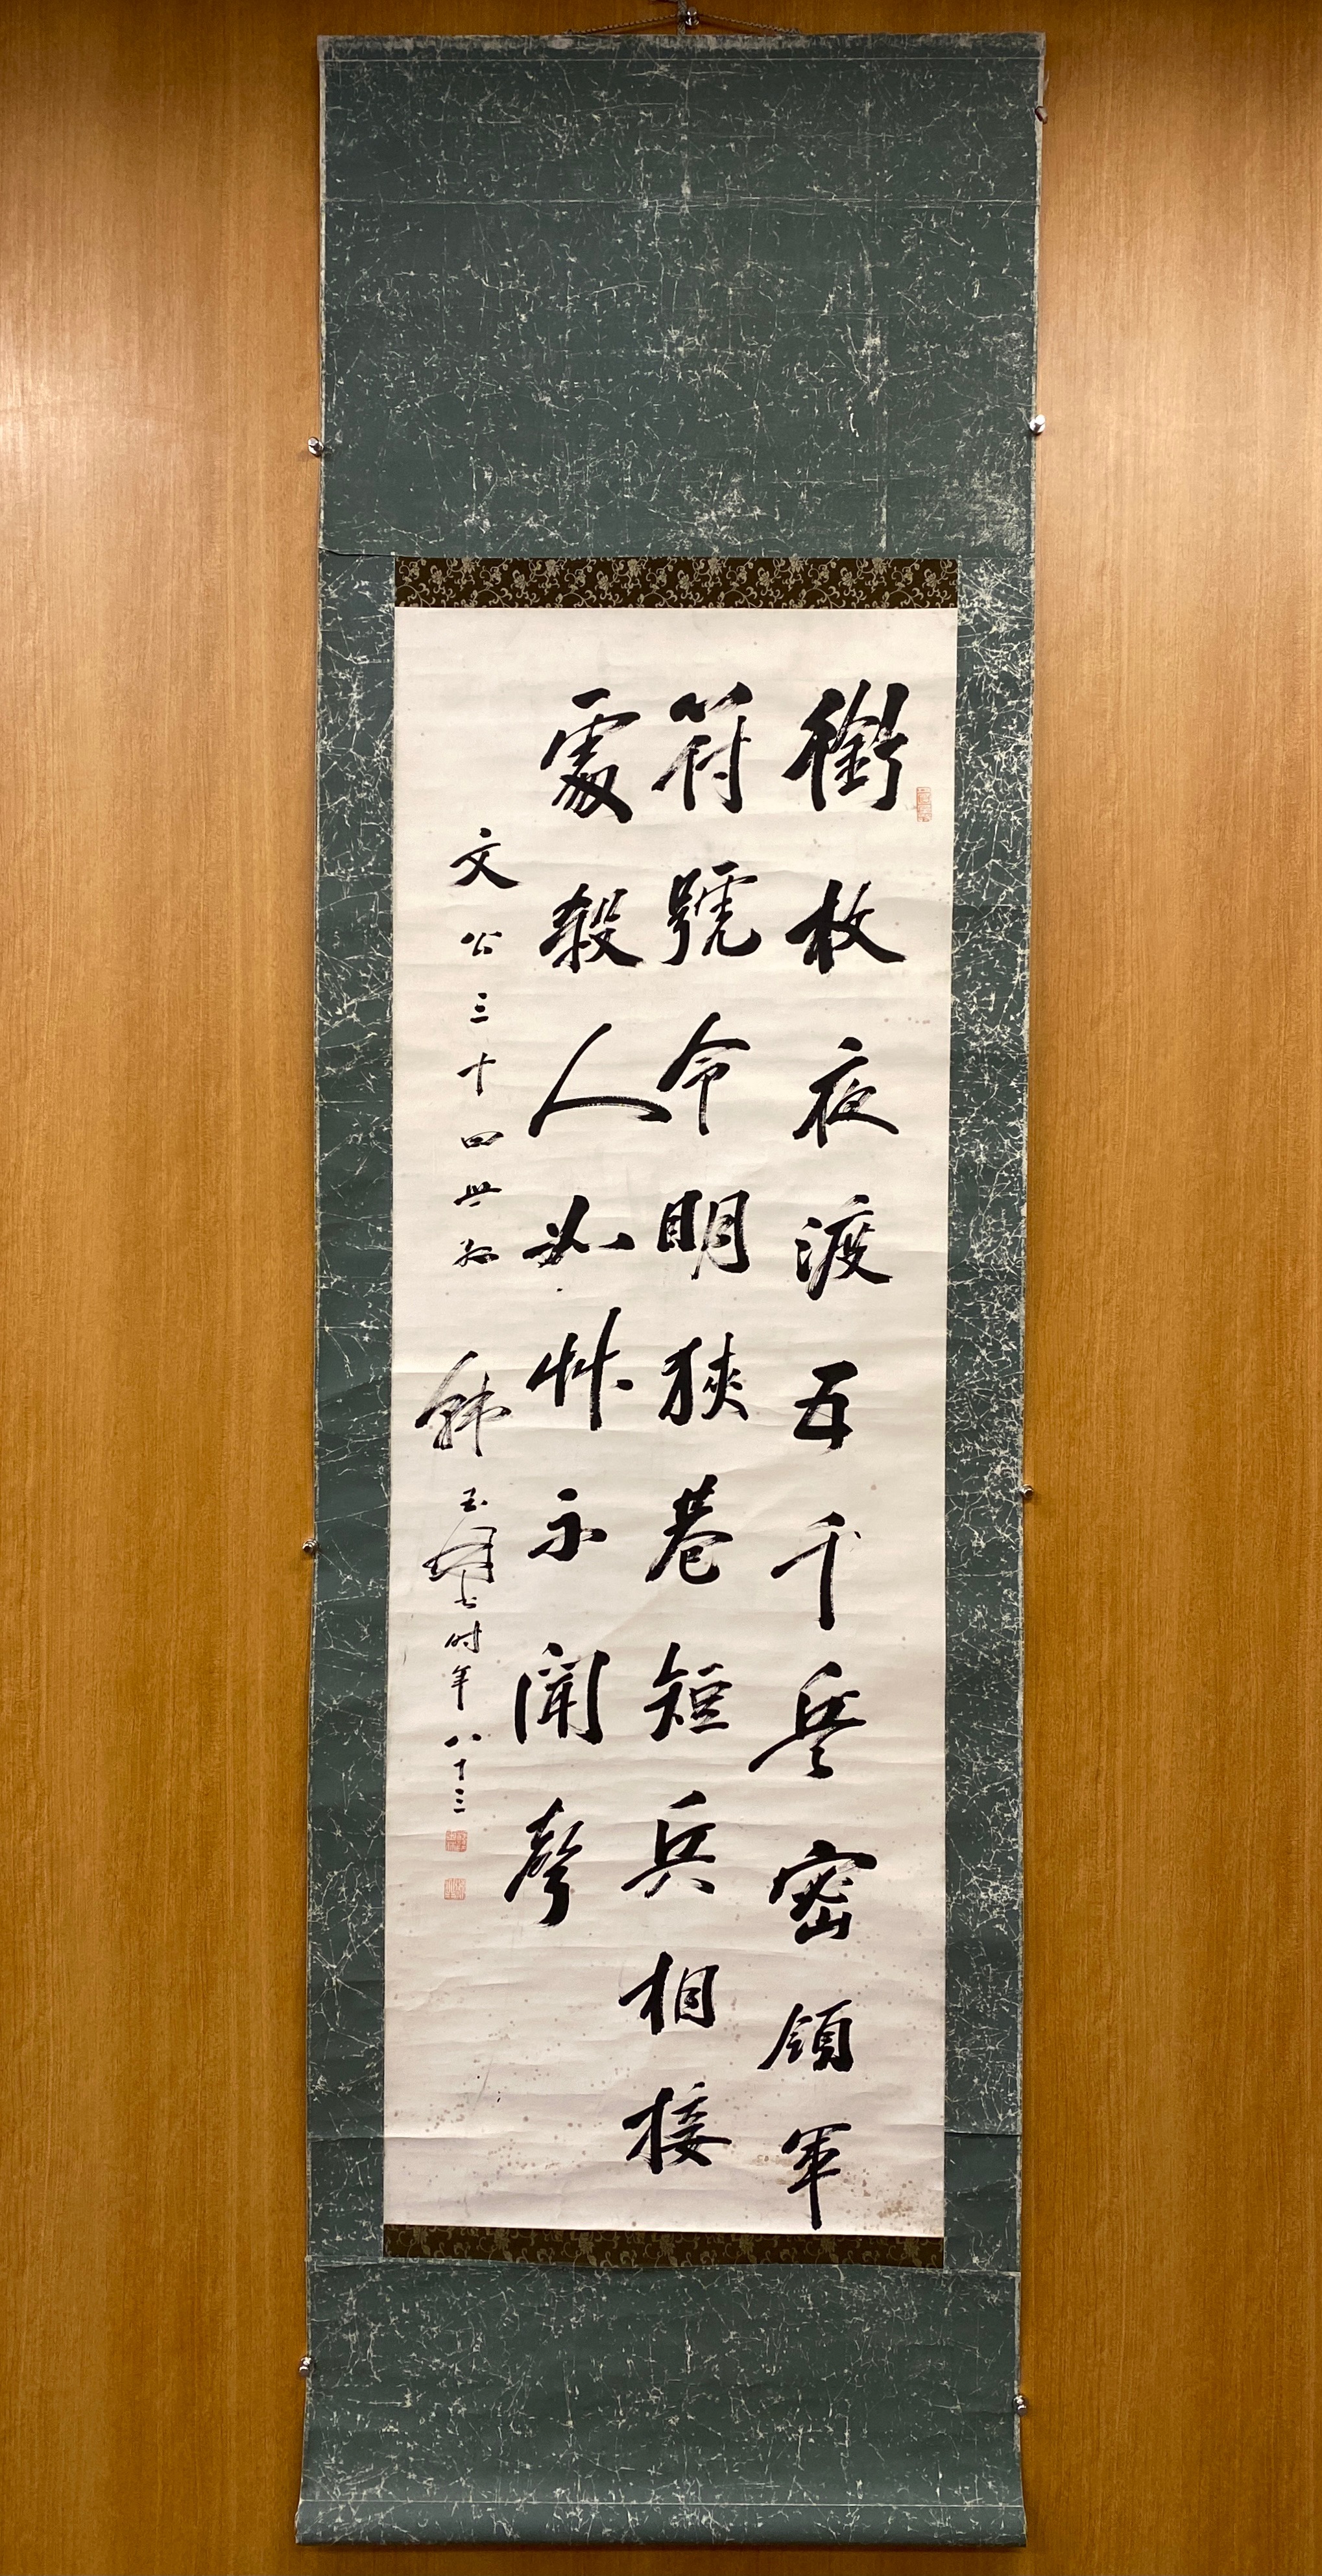 銜枚夜渡五千兵密領軍
符號令明狹巷短兵相接
處殺人如艸不聞聲
文公三十四世孫 韓玉書时年八十三